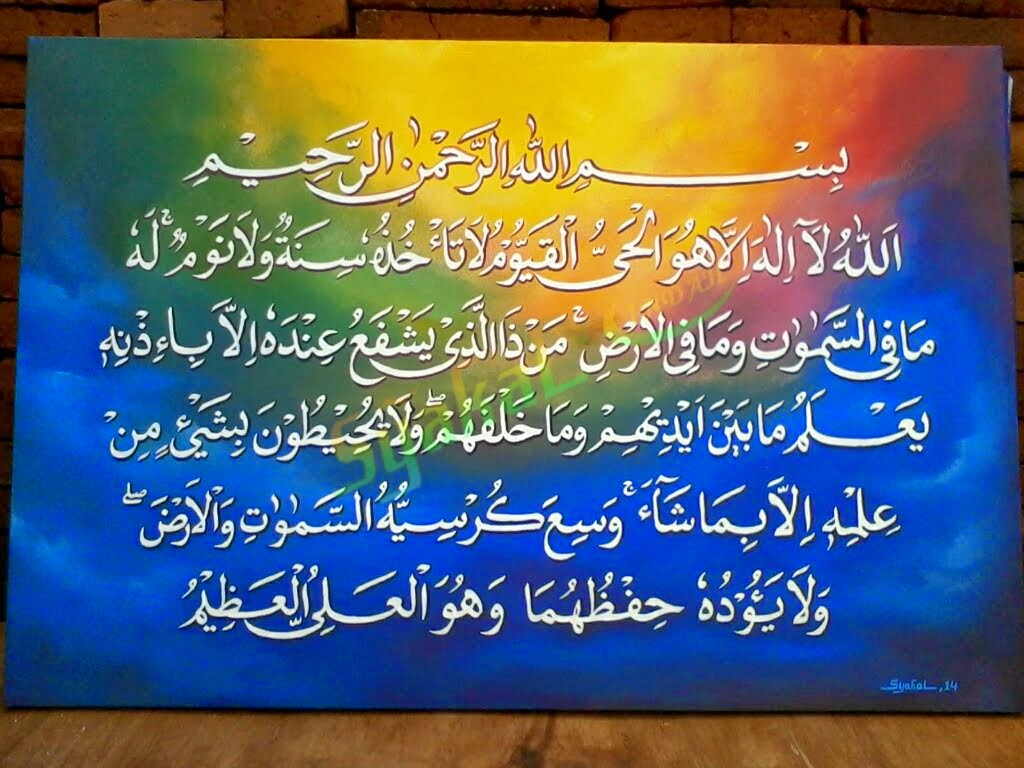 بِسْمِ اللهِ الرَّحْمٰنِ الرَّحِيْمِ
اَللهُ لَآ اِلٰهَ اِلَّا هُوَ الْحَيُّ الْقَيُّوْمُ لَا تَأْخُذُهٗ سِنَةٌ وَلَا نَوْمٌ ۚ لَهٗ
مَا فِى السَّمٰوٰتِ وَمَا فِى الْاَرْضِ ۚ مَنْ ذَا الَّذِيْ يَشْفَعُ عِنْدَهٗ اِلَّا بِاءِذْنِهٖ
يَعْلَمُ مَا بَيْنَ اَيْدِيْهِمْ وَمَا خَلْفَهُمْ ۖ وَلَا يُحِيْطُوْنَ بِشَيْئٍ مِنْ
عِلْمِهٖ اِلَّا بِمَا شَآءَ ۚ وَسِعَ كُرْسِيُّهُ السَّمٰوٰتِ وَالْاَرْضَ ۖ
وَلَا يَـُٔوْدُهٗ حِفْظُهُمَا وَهُوَ الْعَلِيُّ الْعَظِيْمُ
Syakal
Syakal, 14